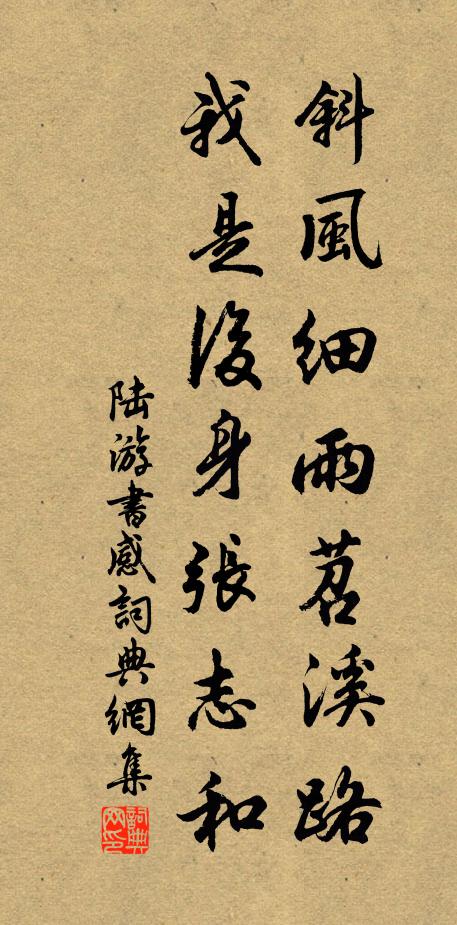 斜風細雨苕溪路
我是後身張志和
陸游書感詞典網集
詞典網印